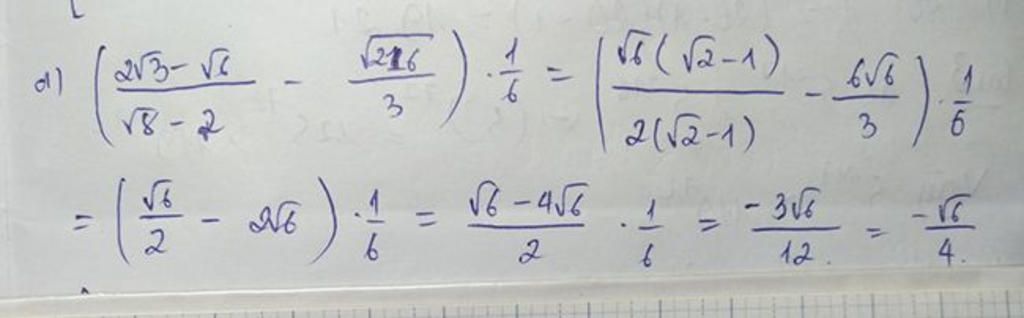 d) ( (2√3 - √6)/(√8 - 2) - √216/3 ) · 1/6 = ( √6(√2 - 1)/2(√2 - 1) - 6√6/3 ) · 1/6
= ( √6/2 - 2√6 ) · 1/6 = (√6 - 4√6)/2 · 1/6 = -3√6/12. = -√6/4.